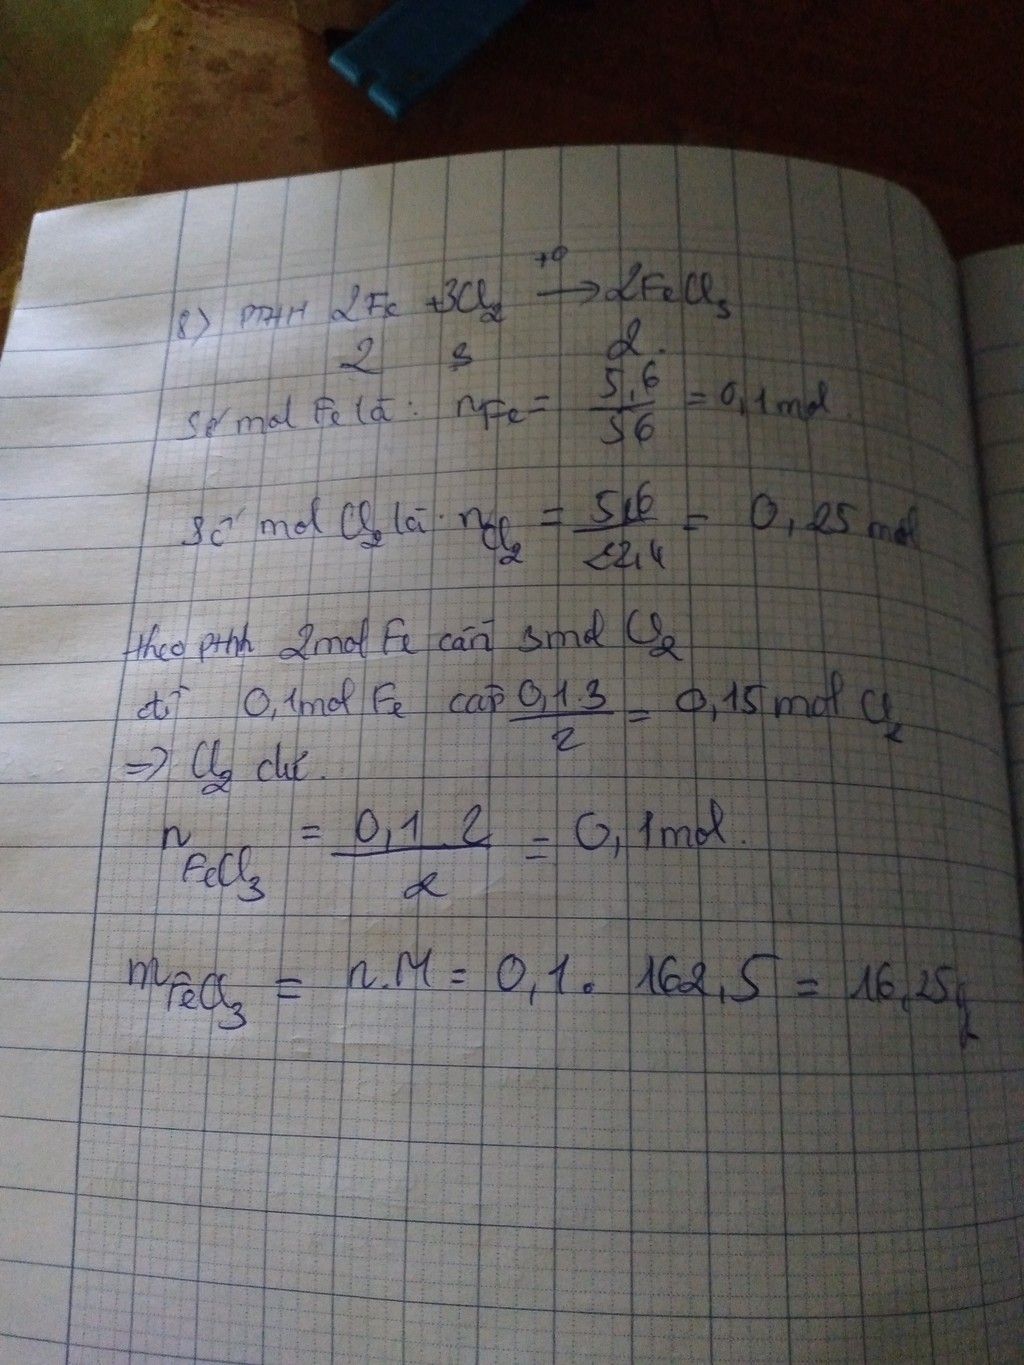 8) PTHH 2Fe + 3Cl₂ →(t°) 2FeCl₃
2 3 2.
Số mol Fe là: nFe = 5,6/56 = 0,1 mol.
Số mol Cl₂ là: nCl₂ = 5,6/22,4 = 0,25 mol
theo pthh 2mol Fe cần 3mol Cl₂
0,1mol Fe cần 0,1.3/2 = 0,15 mol Cl₂
=> Cl₂ dư.
nFeCl₃ = 0,1 2/2 = 0,1mol.
mFeCl₃ = n.M = 0,1. 162,5 = 16,25g